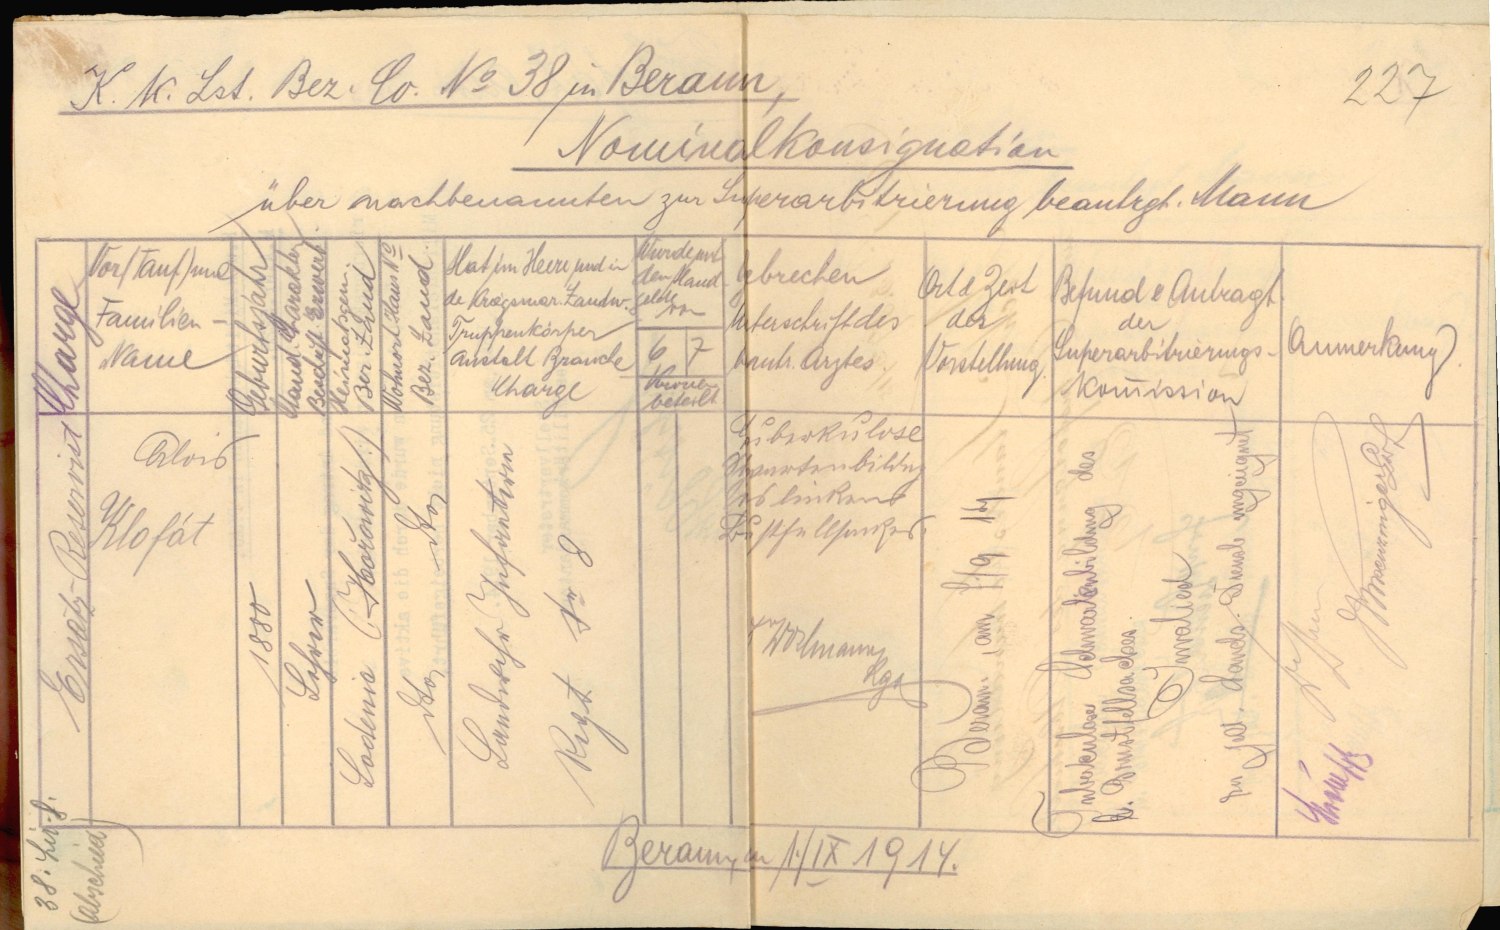 K. k. Lst. Bez. Co. No 38 in Beraun,
227
Nominalkonsignation
über nachbenannten zur Superarbitrierung beantrgt. Mann
Charge
Vor/Tauf/und
Familien-
Name
Geburtsjahr
Stand. Charakter
Beschäft Erwerb.
Heimatsgem.
Bez. Land
Wohnort Haus No
Bez. Land.
Hat im Heere und in
de Kriegsmar. Landw.
Truppenkörper
Anstalt Branche
Charge
Wurde mit
dem Hand
gelde von
6 7
Kronen
beteilt
Gebrechen
Unterschrift des
beantr. Arztes.
Ort & Zeit
der
Vorstellung.
Befund & Antragt
der
Superarbitrierungs-
Komission
Anmerkung
Ersatz-Reservist
Alois
Klofát
1880
Lehrer
Lodenic
(Hořowitz)
dto
dto
Landwehr Infanterie
Regt Nr 8
Tuberkulose
Schwartenbildung
des linken
Brustfellsackes.
Beraun, am 1/9 14
Tuberkulose Schwartenbildung des
l. Brustfellsackes.
Invalid
zu jed. Lands. Dienste ungeeignet
Beraun, am 1./IX 1914.
(Abschied)